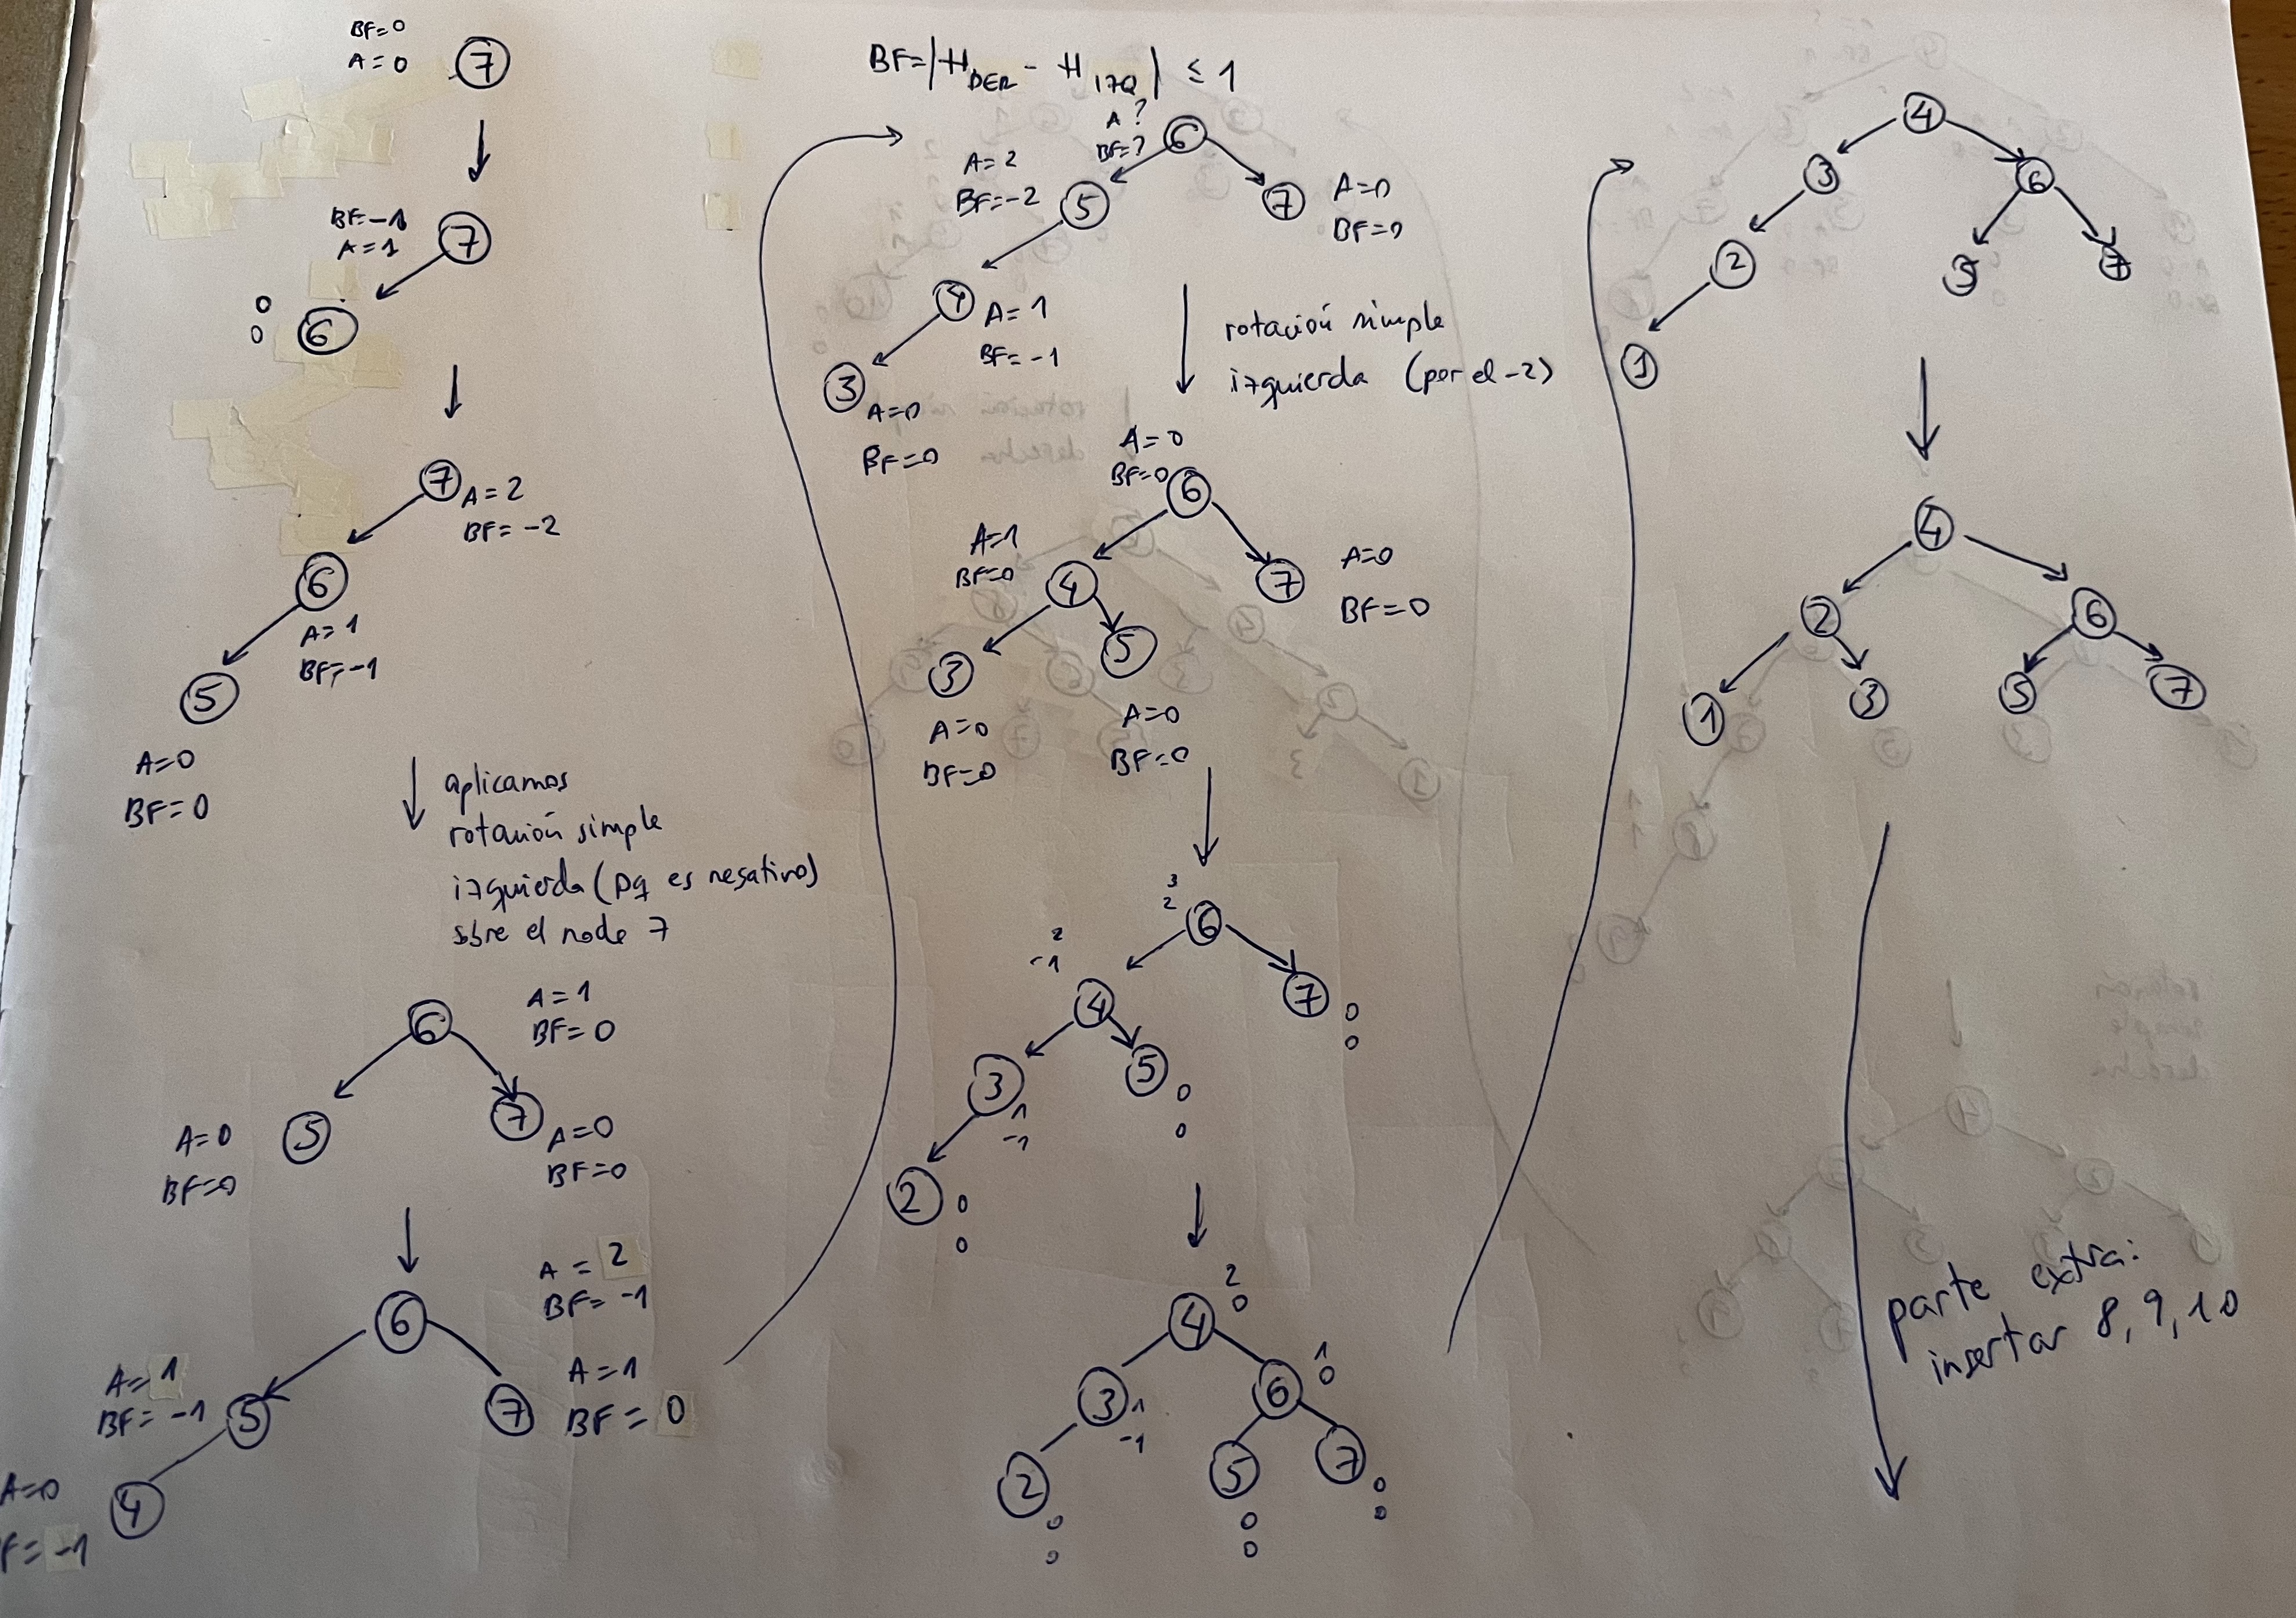 BF=0
A=0
7
BF=-1
A=1
7
0
0
6
7
A=2
BF=-2
6
A=1
BF=-1
5
A=0
BF=0
aplicamos
rotación simple
izquierda (pq es negativo)
sbre el node 7
6
A=1
BF=0
5
A=0
BF=0
7
A=0
BF=0
A=2
BF=-1
6
A=1
BF=-1
5
7
A=1
BF=0
A=0
F=-1
4
BF=|H DER - H IZQ| ≤ 1
A?
BF=?
6
A=2
BF=-2
5
7
A=0
BF=0
4
A=1
BF=-1
3
A=0
BF=0
rotación simple
izquierda (por el -2)
A=0
BF=0
6
A=1
BF=0
4
7
A=0
BF=0
3
5
A=0
BF=0
A=0
BF=0
3
2
6
2
-1
4
7
0
0
3
1
-1
5
0
0
2
0
0
4
2
0
3
1
-1
6
1
0
2
0
0
5
0
0
7
0
0
4
3
6
2
5
7
1
4
2
6
1
3
5
7
parte extra:
insertar 8, 9, 10